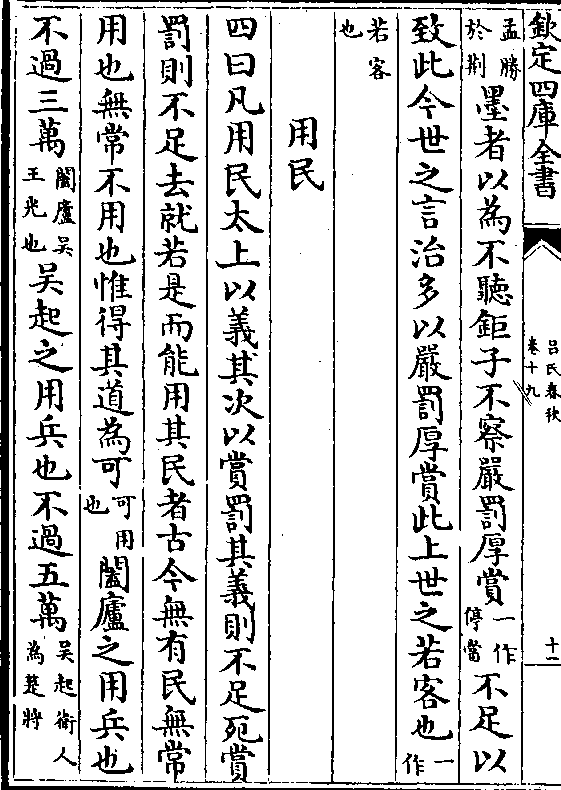 欽定四庫全書
呂氏春秋
卷十九
十一
孟勝
於荆
墨者以為不聽鉅子不察嚴罰厚賞
一作
停當
不足以
致此今世之言治多以嚴罰厚賞此上世之若客也
一
作
若客
也
用民
四曰凡用民太上以義其次以賞罰其義則不足死賞
罰則不足去就若是而能用其民者古今無有民無常
用也無常不用也惟得其道為可
可用
也
闔廬之用兵也
不過三萬
闔廬吳
王光也
吳起之用兵也不過五萬
吳起衛人
為楚將